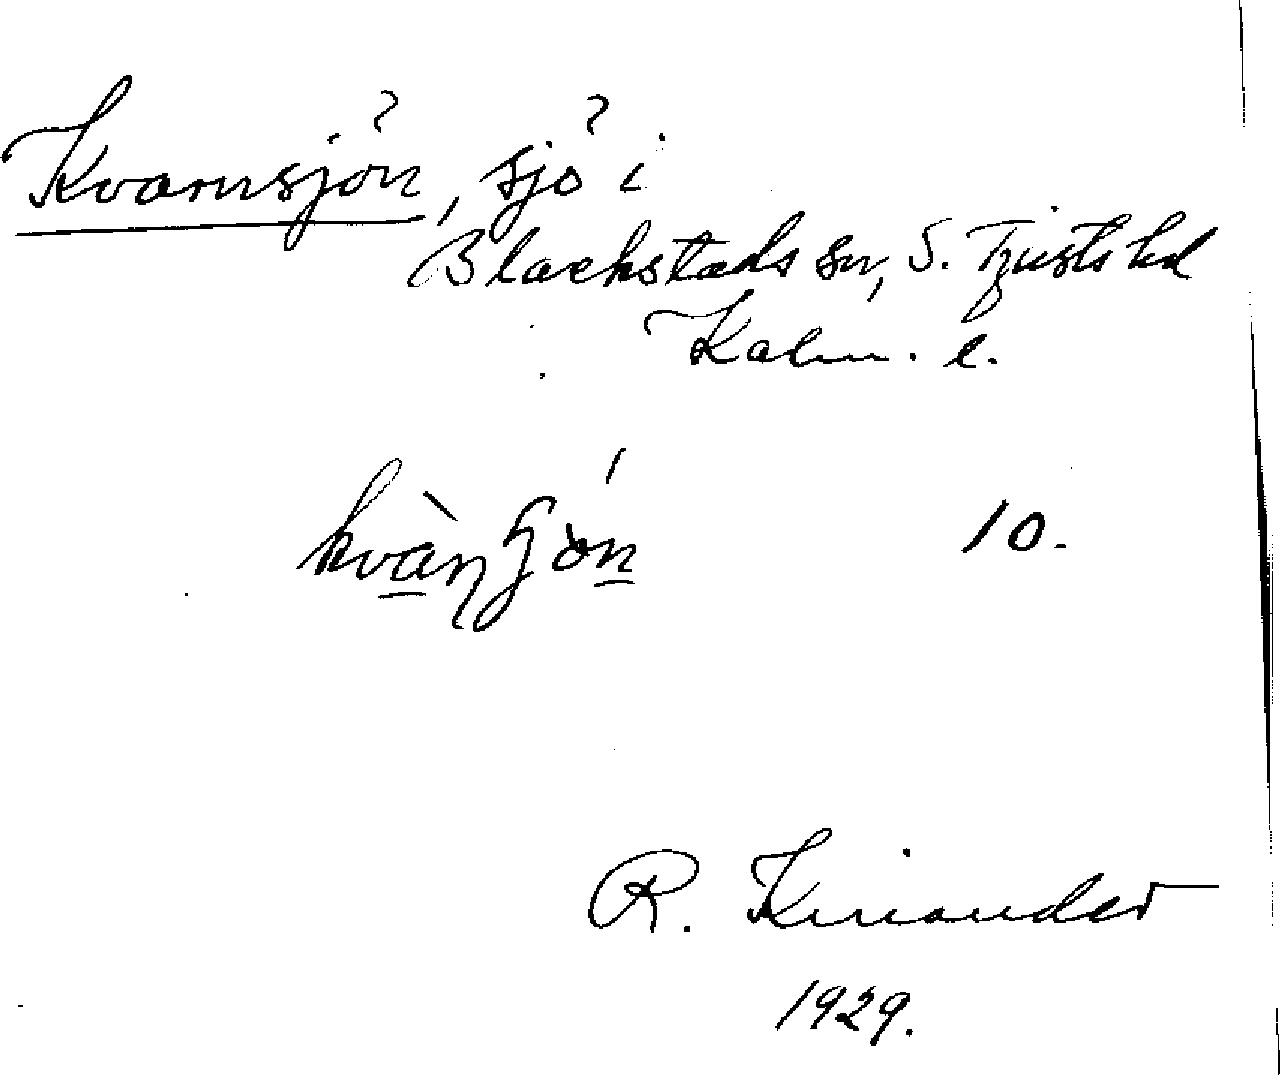 Kvarnsjön, sjö i
Blackstads sn, S. Tjusts hd
Kalm. l.
kvànʃón 10.
R. Kinander
1929.